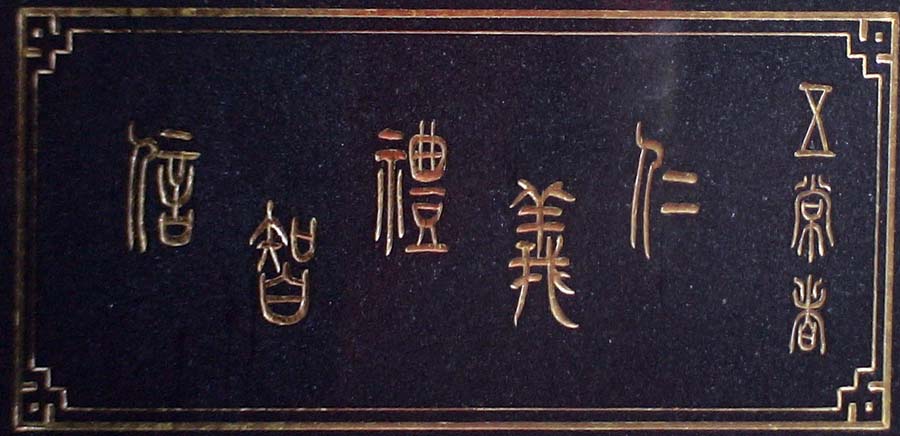 五常者
仁義禮智信